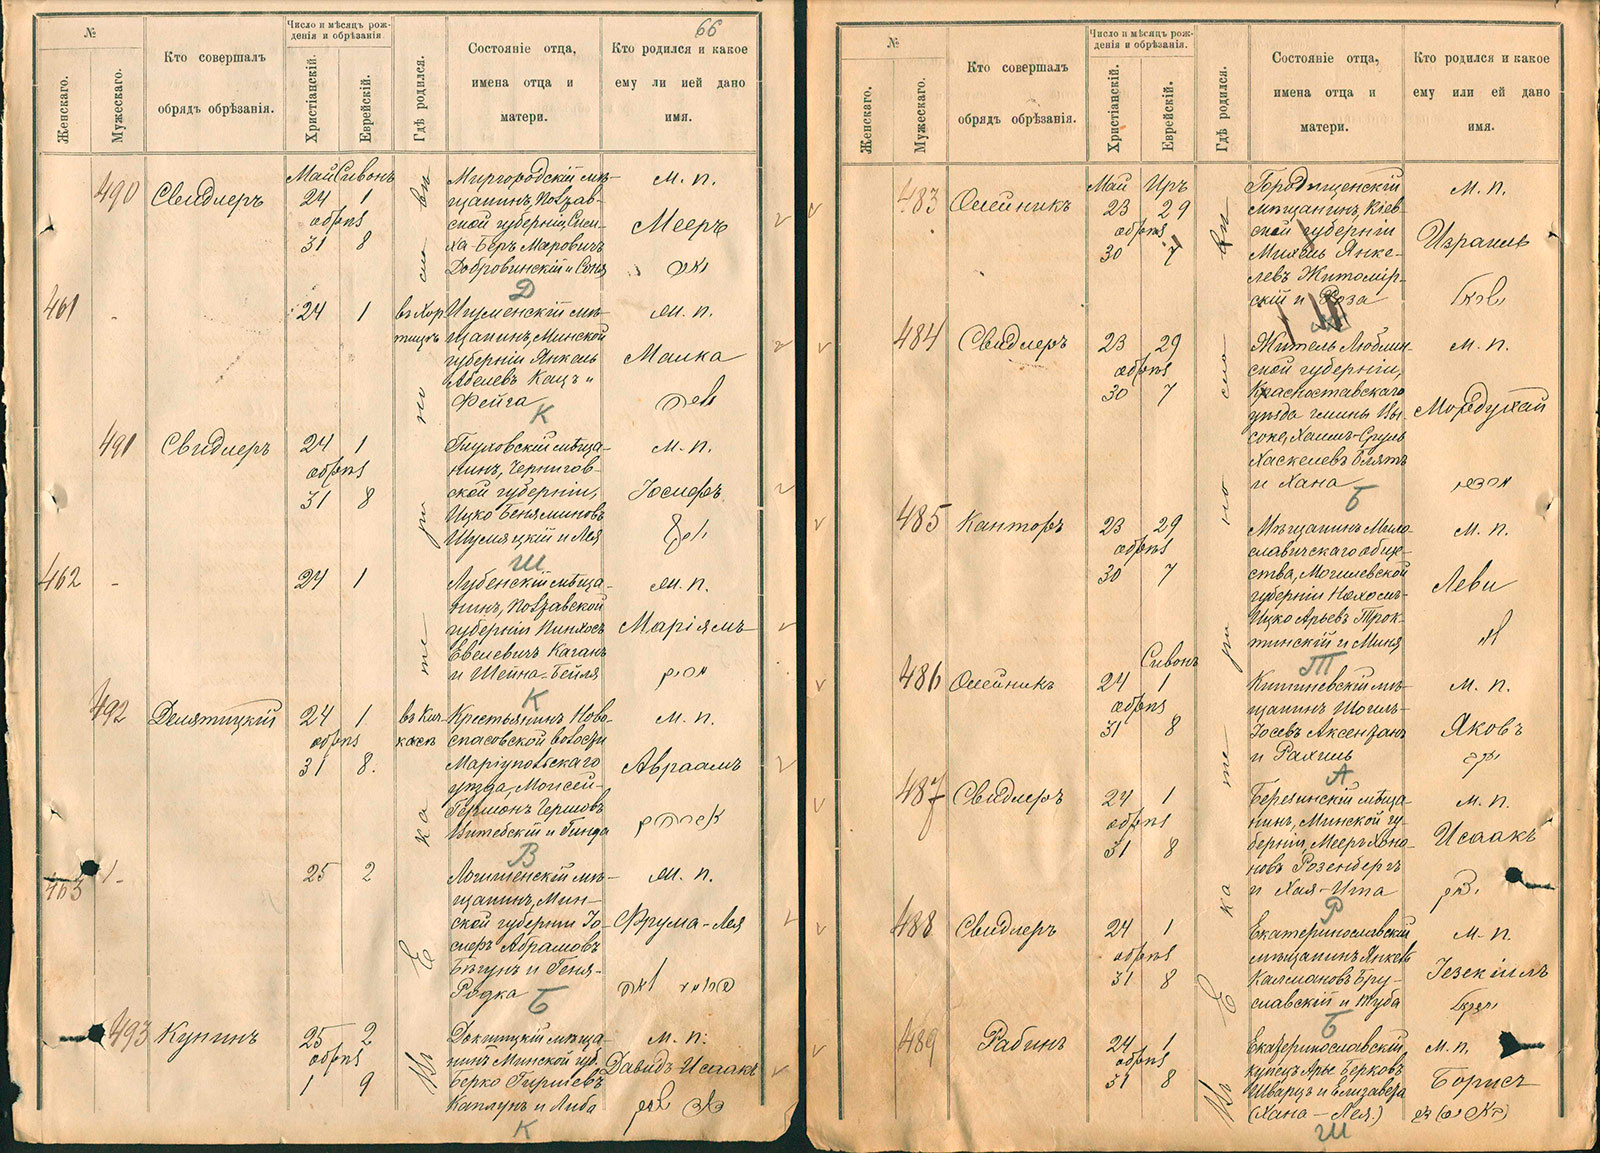 66
№
Женскаго.
Мужескаго.
Кто совершалъ
обрядъ обрѣзанія.
Число и мѣсяцъ рож-
денія и обрѣзанія
Христіанскій.
Еврейскій.
Гдѣ родился.
Состояніе отца,
имена отца и
матери.
Кто родился и какое
ему ли ией дано
имя.
Въ Екатеринославѣ
490
Свидлеръ
Май Сивонъ
24 1
обрѣз
31 8
Миргородскій мѣ-
щанинъ, Полтав-
ской губерніи,
ха-Беръ Маровичъ
Добровинскій и Соня
Д
м. п.
Мееръ
461
24 1
въ Хор
тицѣ
Игуменскій мѣ-
щанинъ, Минской
губерніи Янкель
Абелевъ Кацъ и
Фейга
К
м. п.
Малка
491
Свидлеръ
24 1
обрѣз
31 8
Глуховскій мѣща-
нинъ, Чернигов-
ской губерніи,
Ицко Беняминовъ
Шумяцкій и Лея
Ш
м. п.
Іосифъ
462
24 1
Лубенскій мѣща-
нинъ, Полтавской
губерніи Пинхосъ
Евелевичъ Каганъ
и Шейна-Бейля
К
м. п.
Маріямъ
492
Делятицкій
24 1
обрѣз
31 8.
въ Кич-
касѣ
Крестьянинъ Ново-
спасовской волости
Маріупольскаго
уѣзда, Моисей-
Гершонъ Гершовъ
Витебскій и Гинда
В
м. п.
Авраамъ
463
25 2
Логишенскій мѣ-
щанинъ, Мин-
ской губерніи Іо-
сифъ Абрамовъ
Бѣгунъ и Геня-
Родка
Б
м. п.
Фрума-Лея
493
Купинъ
25 2
обрѣз
1 9
Докшицкій мѣща-
нинъ Минской губ.
Берко Гиршевъ
Каплунъ и Либа
К
м. п.
Давидъ-Исаакъ
№
Женскаго.
Мужескаго.
Кто совершалъ
обрядъ обрѣзанія.
Число и мѣсяцъ рож-
денія и обрѣзанія.
Христіанскій.
Еврейскій.
Гдѣ родился.
Состояніе отца,
имена отца и
матери.
Кто родился и какое
ему или ей дано
имя.
Въ Екатеринославѣ
483
Олейникъ
Май Иръ
23 29
обрѣз
30 7
Городищенскій
мѣщанинъ, Кіев-
ской губерніи
Михель Янке-
левъ Житомір-
скій и Роза
м. п.
Израиль
484
Свидлеръ
23 29
обрѣз
30 7
Житель Люблин-
ской губерніи,
Красноставскаго
уѣзда гмины Вы-
соке, Хаимъ-Сруль
Хаскелевъ Блятъ
и Хана
Б
м. п.
Мордухай
485
Канторъ
23 29
обрѣз
30 7
Мѣщанинъ Мило-
славичскаго обще-
ства, Могилевской
губерніи Нохомъ-
Ицко Арьевъ Трок-
тинскій и Миня
Т
м. п.
Леви
486
Олейникъ
Сивонъ
24 1
обрѣз
31 8
Кишиневскій мѣ-
щанинъ Шоилъ-
Іосевъ Аксенганъ
и Рахиль
А
м. п.
Яковъ
487
Свидлеръ
24 1
обрѣз
31 8
Березинскій мѣща-
нинъ, Минской гу-
берніи, Мееръ Хоно-
новъ Розенбергъ
и Хая-Ита
Р
м. п.
Исаакъ
488
Свидлеръ
24 1
обрѣз
31 8
Екатеринославскій
мѣщанинъ Янкель
Калмановъ Бру-
славскій и Туба
Б
м. п.
Іезекіиль
489
Рабинъ
24 1
обрѣз
31 8
Екатеринославскій
купецъ Арье Берковъ
Шварцъ и Елизавета
(Хана-Лея.)
Ш
м. п.
Борисъ